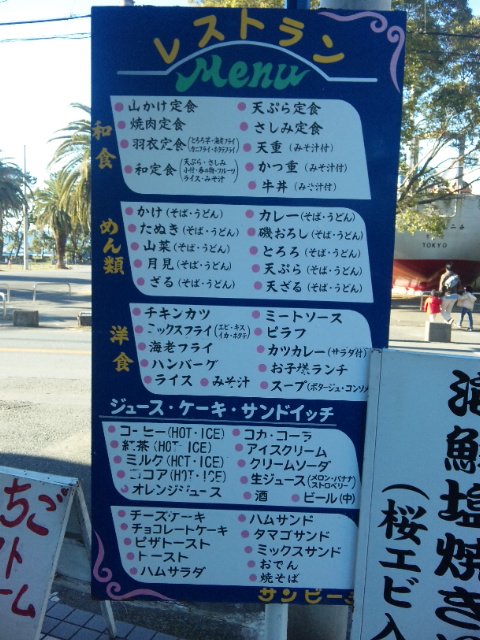 レストラン
Menu
和食
山かけ定食
焼肉定食
羽衣定食(とろろ芋・海老フライ カニフライ・ホタテフライ)
和定食(天ぷら・さしみ 小付・香の物・フルーツ ライス・みそ汁)
天ぷら定食
さしみ定食
天重(みそ汁付)
かつ重(みそ汁付)
牛丼(みそ汁付)
めん類
かけ(そば・うどん)
たぬき(そば・うどん)
山菜(そば・うどん)
月見(そば・うどん)
ざる(そば・うどん)
カレー(そば・うどん)
磯おろし(そば・うどん)
とろろ(そば・うどん)
天ぷら(そば・うどん)
天ざる(そば・うどん)
洋食
チキンカツ
ミックスフライ(エビ・キス イカ・ホタテ)
海老フライ
ハンバーグ
ライス
みそ汁
ミートソース
ピラフ
カツカレー(サラダ付)
お子様ランチ
スープ(ポタージュ・コンソメ
ジュース・ケーキ・サンドイッチ
コーヒー(HOT・ICE)
紅茶(HOT・ICE)
ミルク(HOT・ICE)
ココア(HOT・ICE)
オレンジジュース
コカ・コーラ
アイスクリーム
クリームソーダ
生ジュース(メロン・バナナ ストロベリー)
酒
ビール(中)
チーズケーキ
チョコレートケーキ
ピザトースト
トースト
ハムサラダ
ハムサンド
タマゴサンド
ミックスサンド
おでん
焼そば
サンビー
TOKYO
海鮮塩焼き
(桜エビ入
ちご
ト
ーム